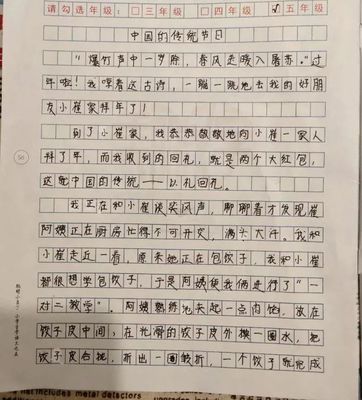 请勾选年级：□三年级 □四年级 ☑五年级
中国的传统节日
"爆竹声中一岁除，春风送暖入屠苏。"过
年啦！我哼着这古诗，一蹦一跳地去我的好朋
友小崔家拜年了！
到了小崔家，我恭恭敬敬地向小崔一家人
拜了年，而我收到的回礼，就是两个大红包，
这就中国的传统——以礼回礼。
我正在和小崔谈笑风声，聊聊着才发现崔
阿姨正在厨房忙得不可开交，满头大汗。我和
小崔走近一看，原来她正在包饺子，我和小崔
都很想学包饺子，于是阿姨便我俩进行了"一
对二教学"。阿姨熟练地夹起一点肉馅，放在
饺子皮中间，在光滑的饺子皮外抹一圈水，把
饺子皮合拢，折出一圈皱折，一个饺子就完成
metal detectors